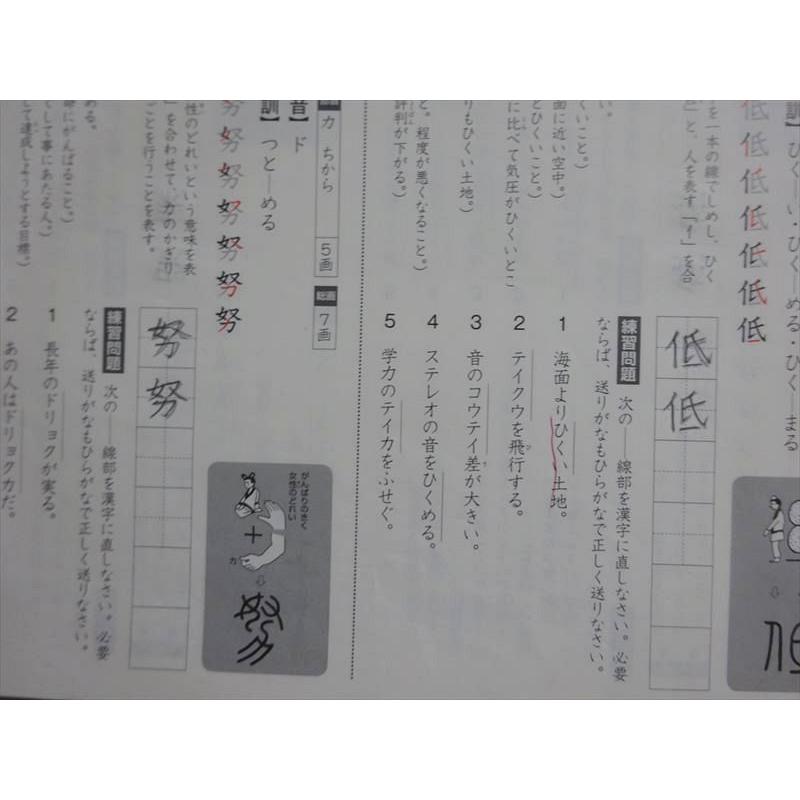 訓】ひく―い・ひく―める・ひく―まる
低低低低低低低
を一本の線でしめし、ひく
と、人を表す「亻」を合
低低
練習問題 次の――線部を漢字に直しなさい。必要
ならば、送りがなもひらがなで正しく送りなさい。
1 海面よりひくい土地。
2 テイクウを飛行する。
3 音のコウテイ差が大きい。
4 ステレオの音をひくめる。
5 学力のテイカをふせぐ。
くいこと。)
面に近い空中。)
とひくいこと。)
に比べて気圧がひくいとこ
りもひくい土地。)
と。程度が悪くなること。)
評判が下がる。)
力 ちから 5画
総画 7画
音】ド
訓】つと―める
努努努努努努努
性のどれいという意味を表
」を合わせて、力のかぎり
ことを行うことを表す。
がんばりのきく
女性のどれい
+
力
努努
練習問題 次の――線部を漢字に直しなさい。必要
ならば、送りがなもひらがなで正しく送りなさい。
1 長年のドリョクが実る。
2 あの人はドリョク力だ。
める。
にがんばること。)
して事にあたる人。)
して達成しようとする目標。)